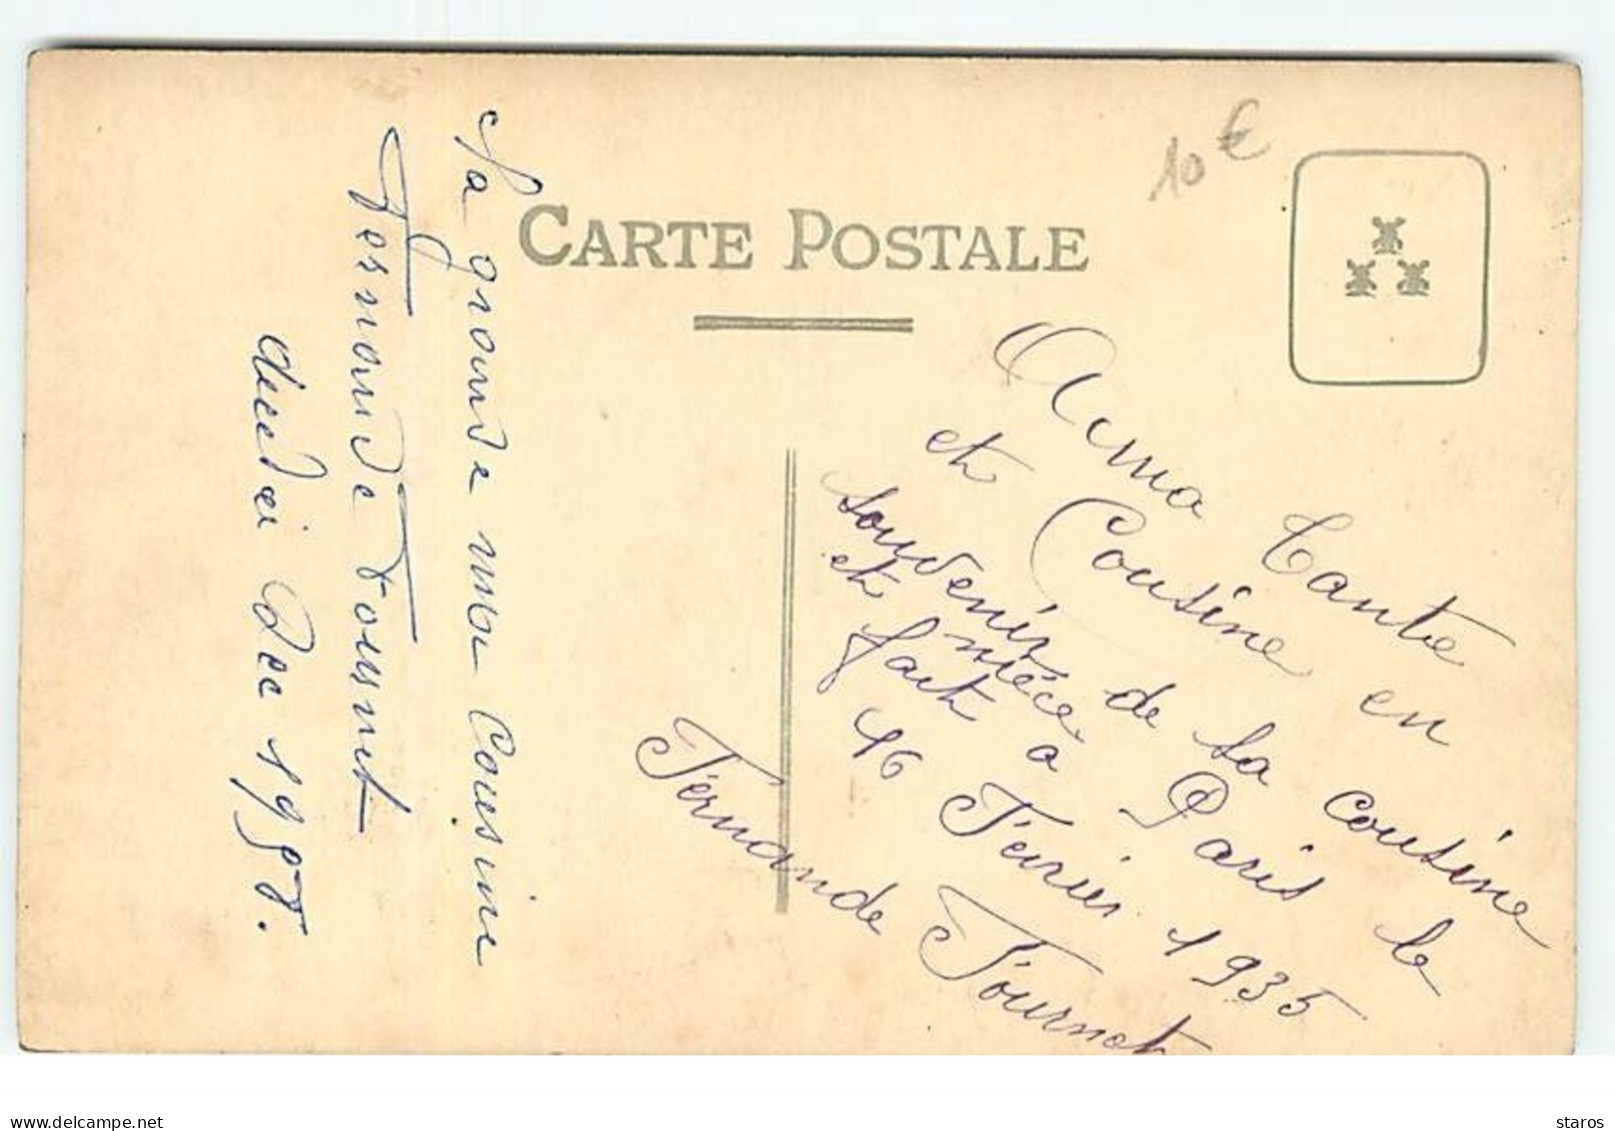 CARTE POSTALE
10 €
A ma Tante
et Cousine en
souvenir de sa cousine
et nièce
fait a Paris le
46 Février 1935
Fernande Fournet
La grande ma Cousine
Fernande Fournet
Dec 1958.
www.delcampe.net
staros